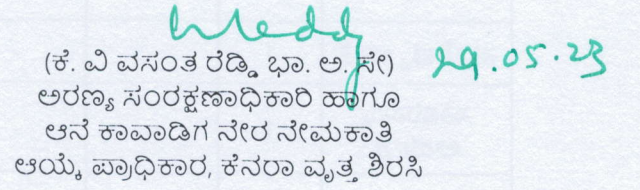 29.05.23
(ಕೆ. ವಿ ವಸಂತ ರೆಡ್ಡಿ, ಭಾ. ಅ. ಸೇ)
ಅರಣ್ಯ ಸಂರಕ್ಷಣಾಧಿಕಾರಿ ಹಾಗೂ
ಆನೆ ಕಾವಾಡಿಗ ನೇರ ನೇಮಕಾತಿ
ಆಯ್ಕೆ ಪ್ರಾಧಿಕಾರ, ಕೆನರಾ ವೃತ್ತ ಶಿರಸಿ